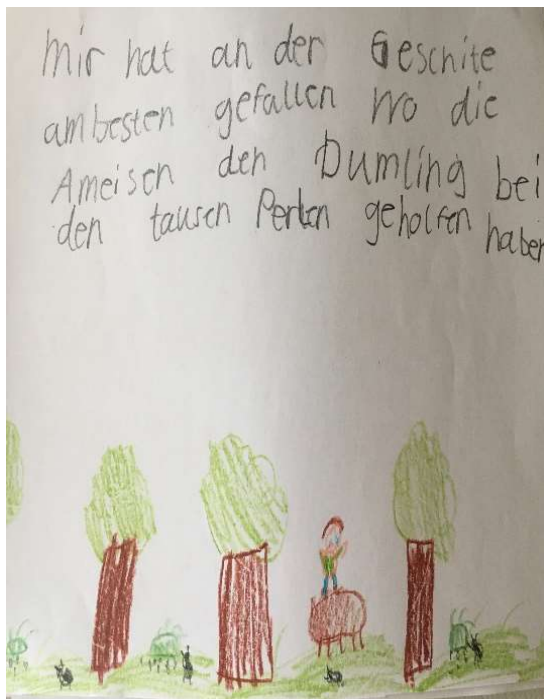 Mir hat an der Geschite
ambesten gefallen wo die
Ameisen den Dumling bei
den tausen Perlen geholfen haben